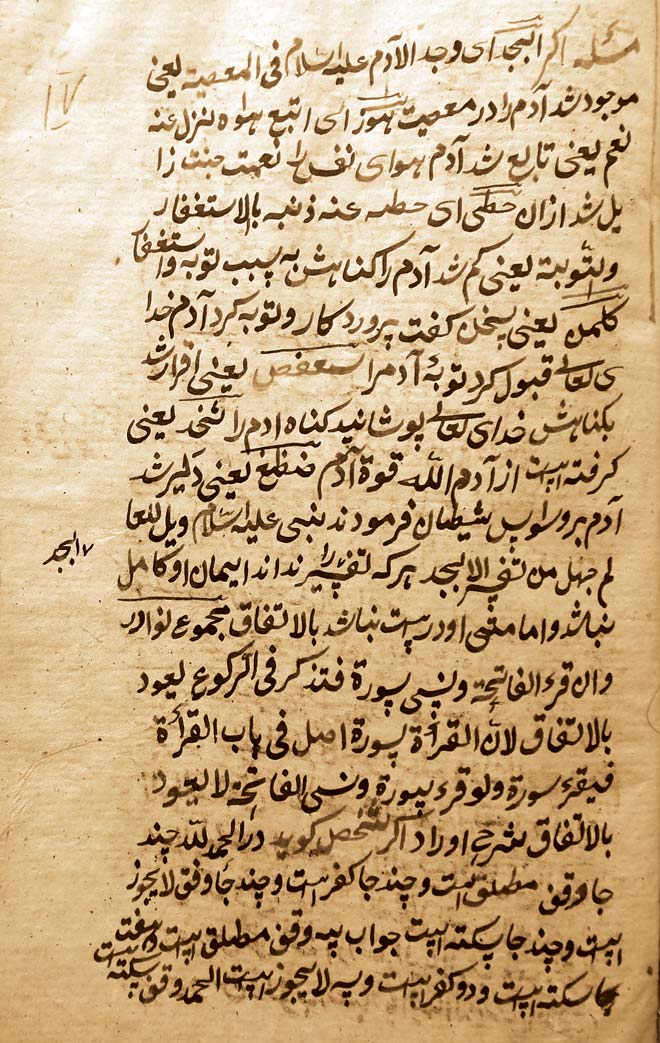 مسئله اگر ابجد ای وجد الآدم علیه السلام فی المعصیة یعنی
موجود شد آدم را در معصیت هوز ای اتبع هواه لنزل عنه
نعم یعنی تابع شد آدم هوای نفس را نعمت جنت زا
یل شد ازان حطی ای حطه عنه ذنبه بالاستغفار
والتوبة یعنی کم شد آدم را کناهش به سبب توبه واستغفار
کلمن یعنی بسخن کفت پروردکار و توبه کرد آدم خدا
ی تعالی قبول کرد توبهٔ آدم را سعفص یعنی اقرار شد
بکناهش خدای تعالی پوشانید کناه ادم را ثخذ یعنی
کرفته است از آدم الله قوة آدم ضظغ یعنی دلیر شد
آدم بر وسواس شیطان فرمودند نبی علیه السلام ویل للعا
لم جهل من تفسیر الابجد هرکه تفسیر را نداند ایمان او کامل
نباشد و امامتی او درست نباشد بالاتفاق مجموع نوادر
وان قرء الفاتحة ونسی سورة فتذکر فی الرکوع یعود
بالاتفاق لان القرأة سورة اصل فی باب القرأة
فیقرء سورة ولو قرء سورة ونسی الفاتحة لا یعود
بالاتفاق شرح اوراد اکر شخص کوید در الحمد لله چند
جا وقف مطلق است و چند جا کفر است و چند جا وقف لا یجوز
است و چند جا سکته است جواب سه وقف مطلق است و هفت
جا سکته است و دو کفر است و سه لا یجوز است الحمد وقف سکته است
ابجد
۱۷